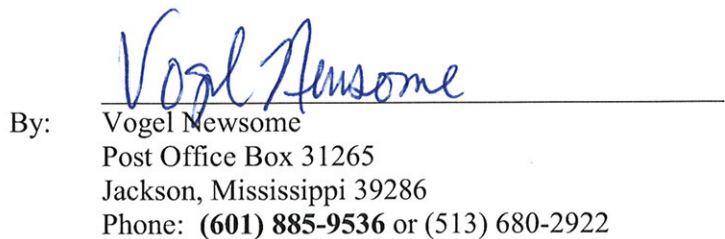 Vogel Newsome
By: Vogel Newsome
Post Office Box 31265
Jackson, Mississippi 39286
Phone: (601) 885-9536 or (513) 680-2922